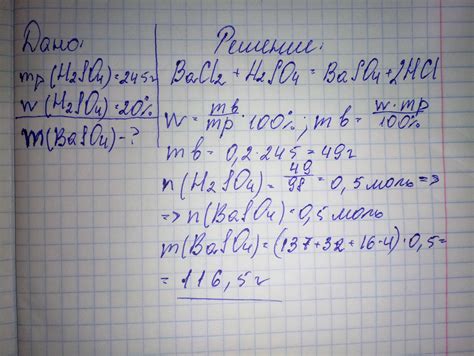 Дано:
mр(H2SO4)=245г
w(H2SO4)=20%
m(BaSO4)-?
Решение:
BaCl2 + H2SO4 = BaSO4 + 2HCl
w = mв/mр · 100%; mв = w·mр/100%
mв = 0,2·245 = 49г
n(H2SO4) = 49/98 = 0,5 моль =>
=> n(BaSO4) = 0,5 моль
m(BaSO4) = (137+32+16·4)·0,5 =
= 116,5г